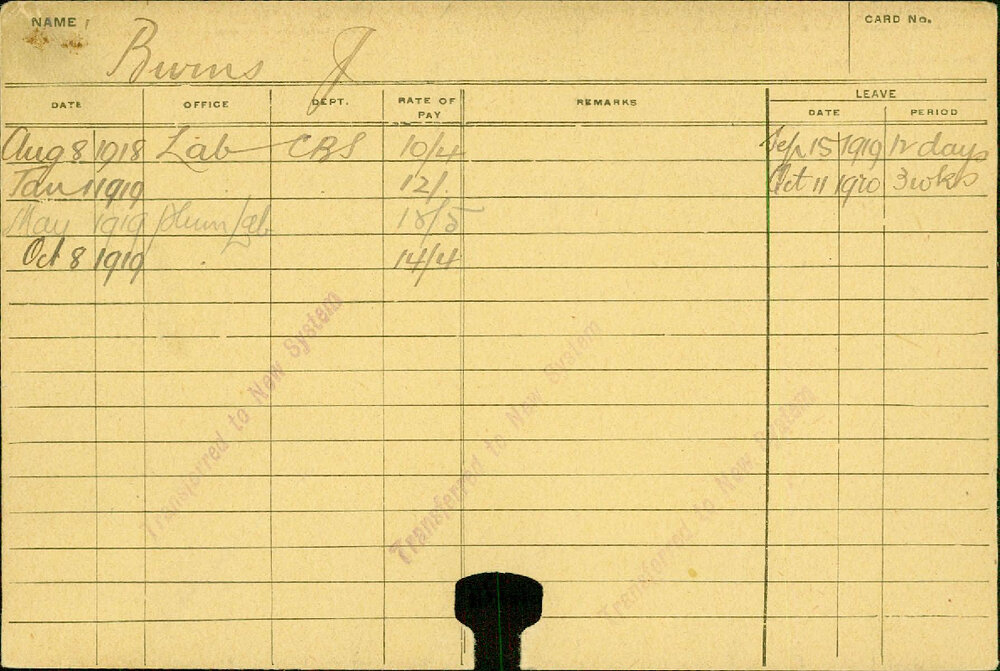 NAME
CARD No.
Burns J
DATE OFFICE DEPT. RATE OF PAY REMARKS LEAVE
DATE PERIOD
Aug 8 1918 Lab CRS 10/4 Sep 15 1919 12 days
Jan 1 1919 12/. Oct 11 1920 3 wks
May 1919 Lab
Oct 8 1919 14/4
Transferred to New System
Transferred to New System
Transferred to New System